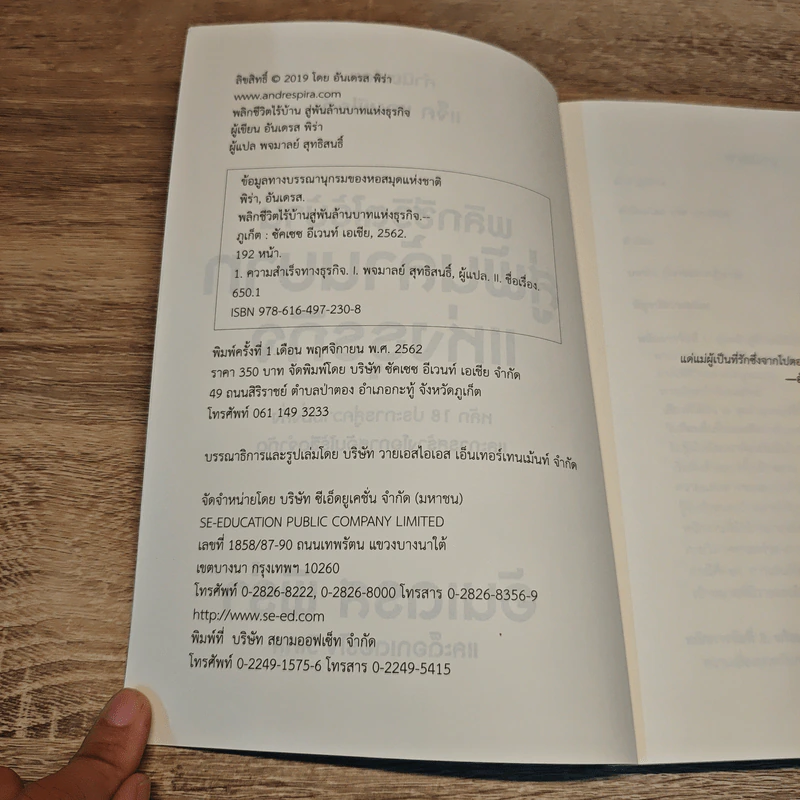 ลิขสิทธิ์ © 2019 โดย อันเดรส พิร่า
www.andrespira.com
พลิกชีวิตไร้บ้าน สู่พันล้านบาทแห่งธุรกิจ
ผู้เขียน อันเดรส พิร่า
ผู้แปล พจมาลย์ สุทธิสนธิ์
ข้อมูลทางบรรณานุกรมของหอสมุดแห่งชาติ
พิร่า, อันเดรส.
พลิกชีวิตไร้บ้านสู่พันล้านบาทแห่งธุรกิจ.--
ภูเก็ต : ซัคเซซ อีเวนท์ เอเชีย, 2562.
192 หน้า.
1. ความสำเร็จทางธุรกิจ. I. พจมาลย์ สุทธิสนธิ์, ผู้แปล. II. ชื่อเรื่อง.
650.1
ISBN 978-616-497-230-8
พิมพ์ครั้งที่ 1 เดือน พฤศจิกายน พ.ศ. 2562
ราคา 350 บาท จัดพิมพ์โดย บริษัท ซัคเซซ อีเวนท์ เอเชีย จำกัด
49 ถนนสิริราชย์ ตำบลป่าตอง อำเภอกะทู้ จังหวัดภูเก็ต
โทรศัพท์ 061 149 3233
บรรณาธิการและรูปเล่มโดย บริษัท วายเอสไอเอส เอ็นเทอร์เทนเม้นท์ จำกัด
จัดจำหน่ายโดย บริษัท ซีเอ็ดยูเคชั่น จำกัด (มหาชน)
SE-EDUCATION PUBLIC COMPANY LIMITED
เลขที่ 1858/87-90 ถนนเทพรัตน แขวงบางนาใต้
เขตบางนา กรุงเทพฯ 10260
โทรศัพท์ 0-2826-8222, 0-2826-8000 โทรสาร 0-2826-8356-9
http://www.se-ed.com
พิมพ์ที่ บริษัท สยามออฟเซ็ท จำกัด
โทรศัพท์ 0-2249-1575-6 โทรสาร 0-2249-5415
แด่แม่ผู้เป็นที่รักซึ่งจากไป